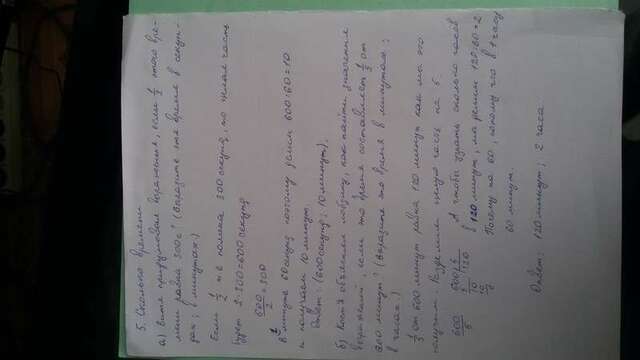 5. Сколько времени
а) Витя придумывал выражения, если 1/2 этого вре-
мени равна 300с? (Выразите это время в секун-
дах; в минутах.)
Если 1/2 т.е половина 300 секунд, то целая часть
будет 2·300=600 секунд
600/2=300
В 1 минуте 60 секунд поэтому делим 600:60=10
и получаем 10 минут.
Ответ: (600 секунд; 10 минут).
б) Костя объяснял, как найти значения
выражений, если это время составляет 1/5 от
600 минут? (Выразите это время в минутах;
в часах.)
1/5 от 600 минут равна 120 минут как мы это
получим. Разделим целую часть на 5.
600/5 600 5 А чтобы узнать сколько часов
5 120 в 120 минут, мы делим 120:60=2
10 Почему на 60, потому что в 1 часу
10 60 минут.
Ответ: 120 минут; 2 часа